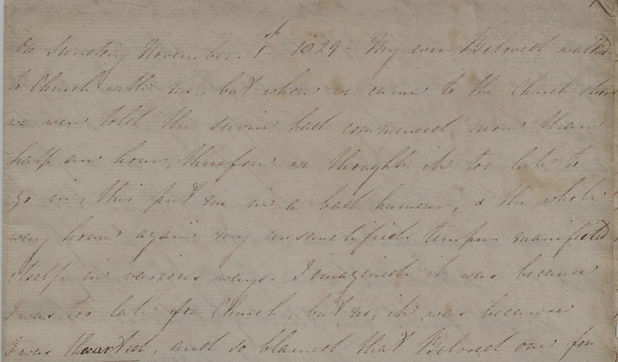 On Sunday November 1st 1829 - My ever Beloved walked
to Church with me, but when we came to the Church door
we were told the service had commenced more than
half an hour, therefore we thought it too late to
go in, this put me in a bad humour, & the whole
way home again my unsanctified temper manifested
itself in various ways. I imagined it was because
I was too late for Church, but no, it was because
I was thwarted, and so blamed that Beloved one for